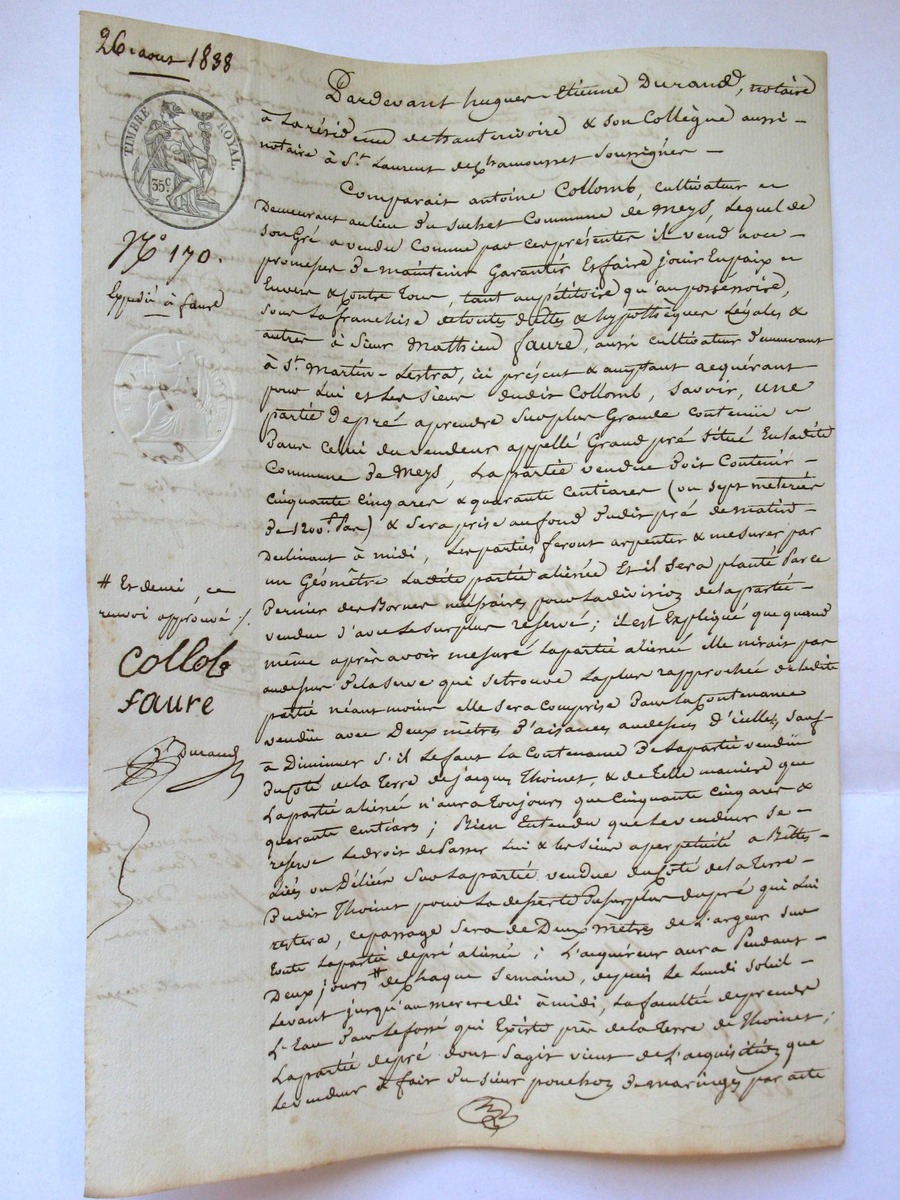 26 aout 1838
TIMBRE ROYAL
35c
N° 170.
Expédié à faure
# Et demi, ce
renvoi approuvé /.
Collob
faure
Durand
Pardevant hugues Etienne Durand, notaire
à La résidence de hauterivoire & son Collègue aussi
notaire à St. Laurent de Chamousset Soussignés
Comparait antoine Collomb, cultivateur
Demeurant au lieu du suchet Commune de Meys, Lequel de
son Gré a vendu Comme par ces présentes il vend avec
promesse De maintenir Garantir Et faire jouir En paix
Envers & Contre Tous, tant au pétitoire qu'au possessoire,
sous La franchise de toutes dettes & hypothèques Légales &
autres à Sieur Mathieu faure, aussi cultivateur Demeurant
à St. Martin-Lestra, ici présent & acceptant acquérant
pour Lui et Les Siens dudit Collomb, savoir, une
partie De pré aprendre Sur plus Grande Contenüe
Dans Celui du vendeur appellé Grand pré situé En Ladite
Commune De Meys, La partie vendue Doit Contenir
Cinquante Cinq ares & quarante Centiares (ou sept meterées
De 1200. Pas) & Sera prise au fond Dudit pré De matin
Declinant à midi, Les parties feront arpenter & mesurer par
un Géomêtre Ladite partie aliénée Et il Sera planté Par ce
Dernier des Bornes nécessaires pour La division de La partie
vendue D'avec Le Surplus reservé; il est Expliqué que quand
même après avoir mesuré La partie aliénée elle n'irait pas
au dessus De La Serve qui se trouve La plus rapprochée de Ladite
partie néantmoins elle Sera Comprise Dans La Contenance
vendüe avec Deux mètres D'aisances au dessus d'icelle, sauf
à Diminuer S'il Le faut La Contenance De La partie vendüe
Du Coté de La Terre de jacques Thoinet, & de Telle manière que
La partie aliénée n'aura Toujours que Cinquante Cinq ares &
quarante Centiares; Bien Entendu que Le vendeur Se
reserve Le droit de Passer Lui & les Siens a perpetuité a Bettes
Liés ou Déliées Sur La partie vendue du Coté de La Terre
Dudit Thoinet pour La desserte Du Surplus du pré qui Lui
restera, Ce passage Sera de Deux mètres de Largeur sur
toute La partie de pré aliénée; L'acquéreur aura Pendant
Deux jours # de Chaque Semaine, depuis Le Lundi Soleil
Levant jusqu'au mercredi à midi, La faculté de prendre
L'Eau Dans Le fossé qui Existe près de La Terre de Thoinet;
La partie de pré dont S'agit vient de L'acquisition que
Le vendeur a fait Du Sieur ponchon De maringes par acte